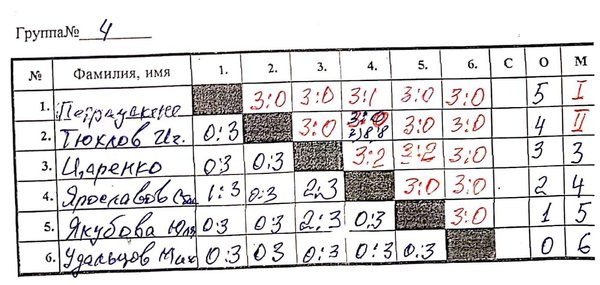 Группа№ 4
№ Фамилия, имя 1. 2. 3. 4. 5. 6. С О М
1. 3:0 3:0 3:1 3:0 3:0 5 I
2. Тюклов Иг. 0:3 3:0 3:0 3:0 3:0 4 II
3. Царенко 0:3 0:3 3:2 3:2 3:0 3 3
4. Ярославов 1:3 0:3 2:3 3:0 3:0 2 4
5. Якубова Юля 0:3 0:3 2:3 0:3 3:0 1 5
6. Удальцов Мих 0:3 03 0:3 0:3 0:3 0 6